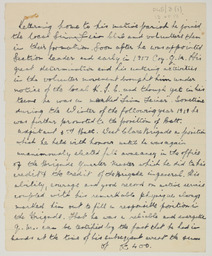 Returning home to his native parish he joined
the local Sinn Féin Club and volunteers
in their formation. Soon after he was appointed
Section leader and early in 1917 Coy. O/C. His
great determination and his untiring attention
to the volunteer movement brought him under
notice of the local R.I.C. and though yet in his
teens he was a marked Sinn Feiner. Sometime
during the Winter of the following year 1918 he
was further promoted to the position of Batt.
adjutant 4th Batt. East Clare Brigade a position
which he held with honour until he was
unanimously elected to a vacancy in the office
of the Brigade Quarter Master which he did to his
credit & the credit of the Brigade in general. His
ability, courage and good record in active service
coupled with his remarkable physique always
marked him out to fill a responsible position in
the Brigade. That he was a reliable and energetic
Q.M. can be testified by the fact that he had in
hands at the time of his subsequent arrest the sum
of £400.